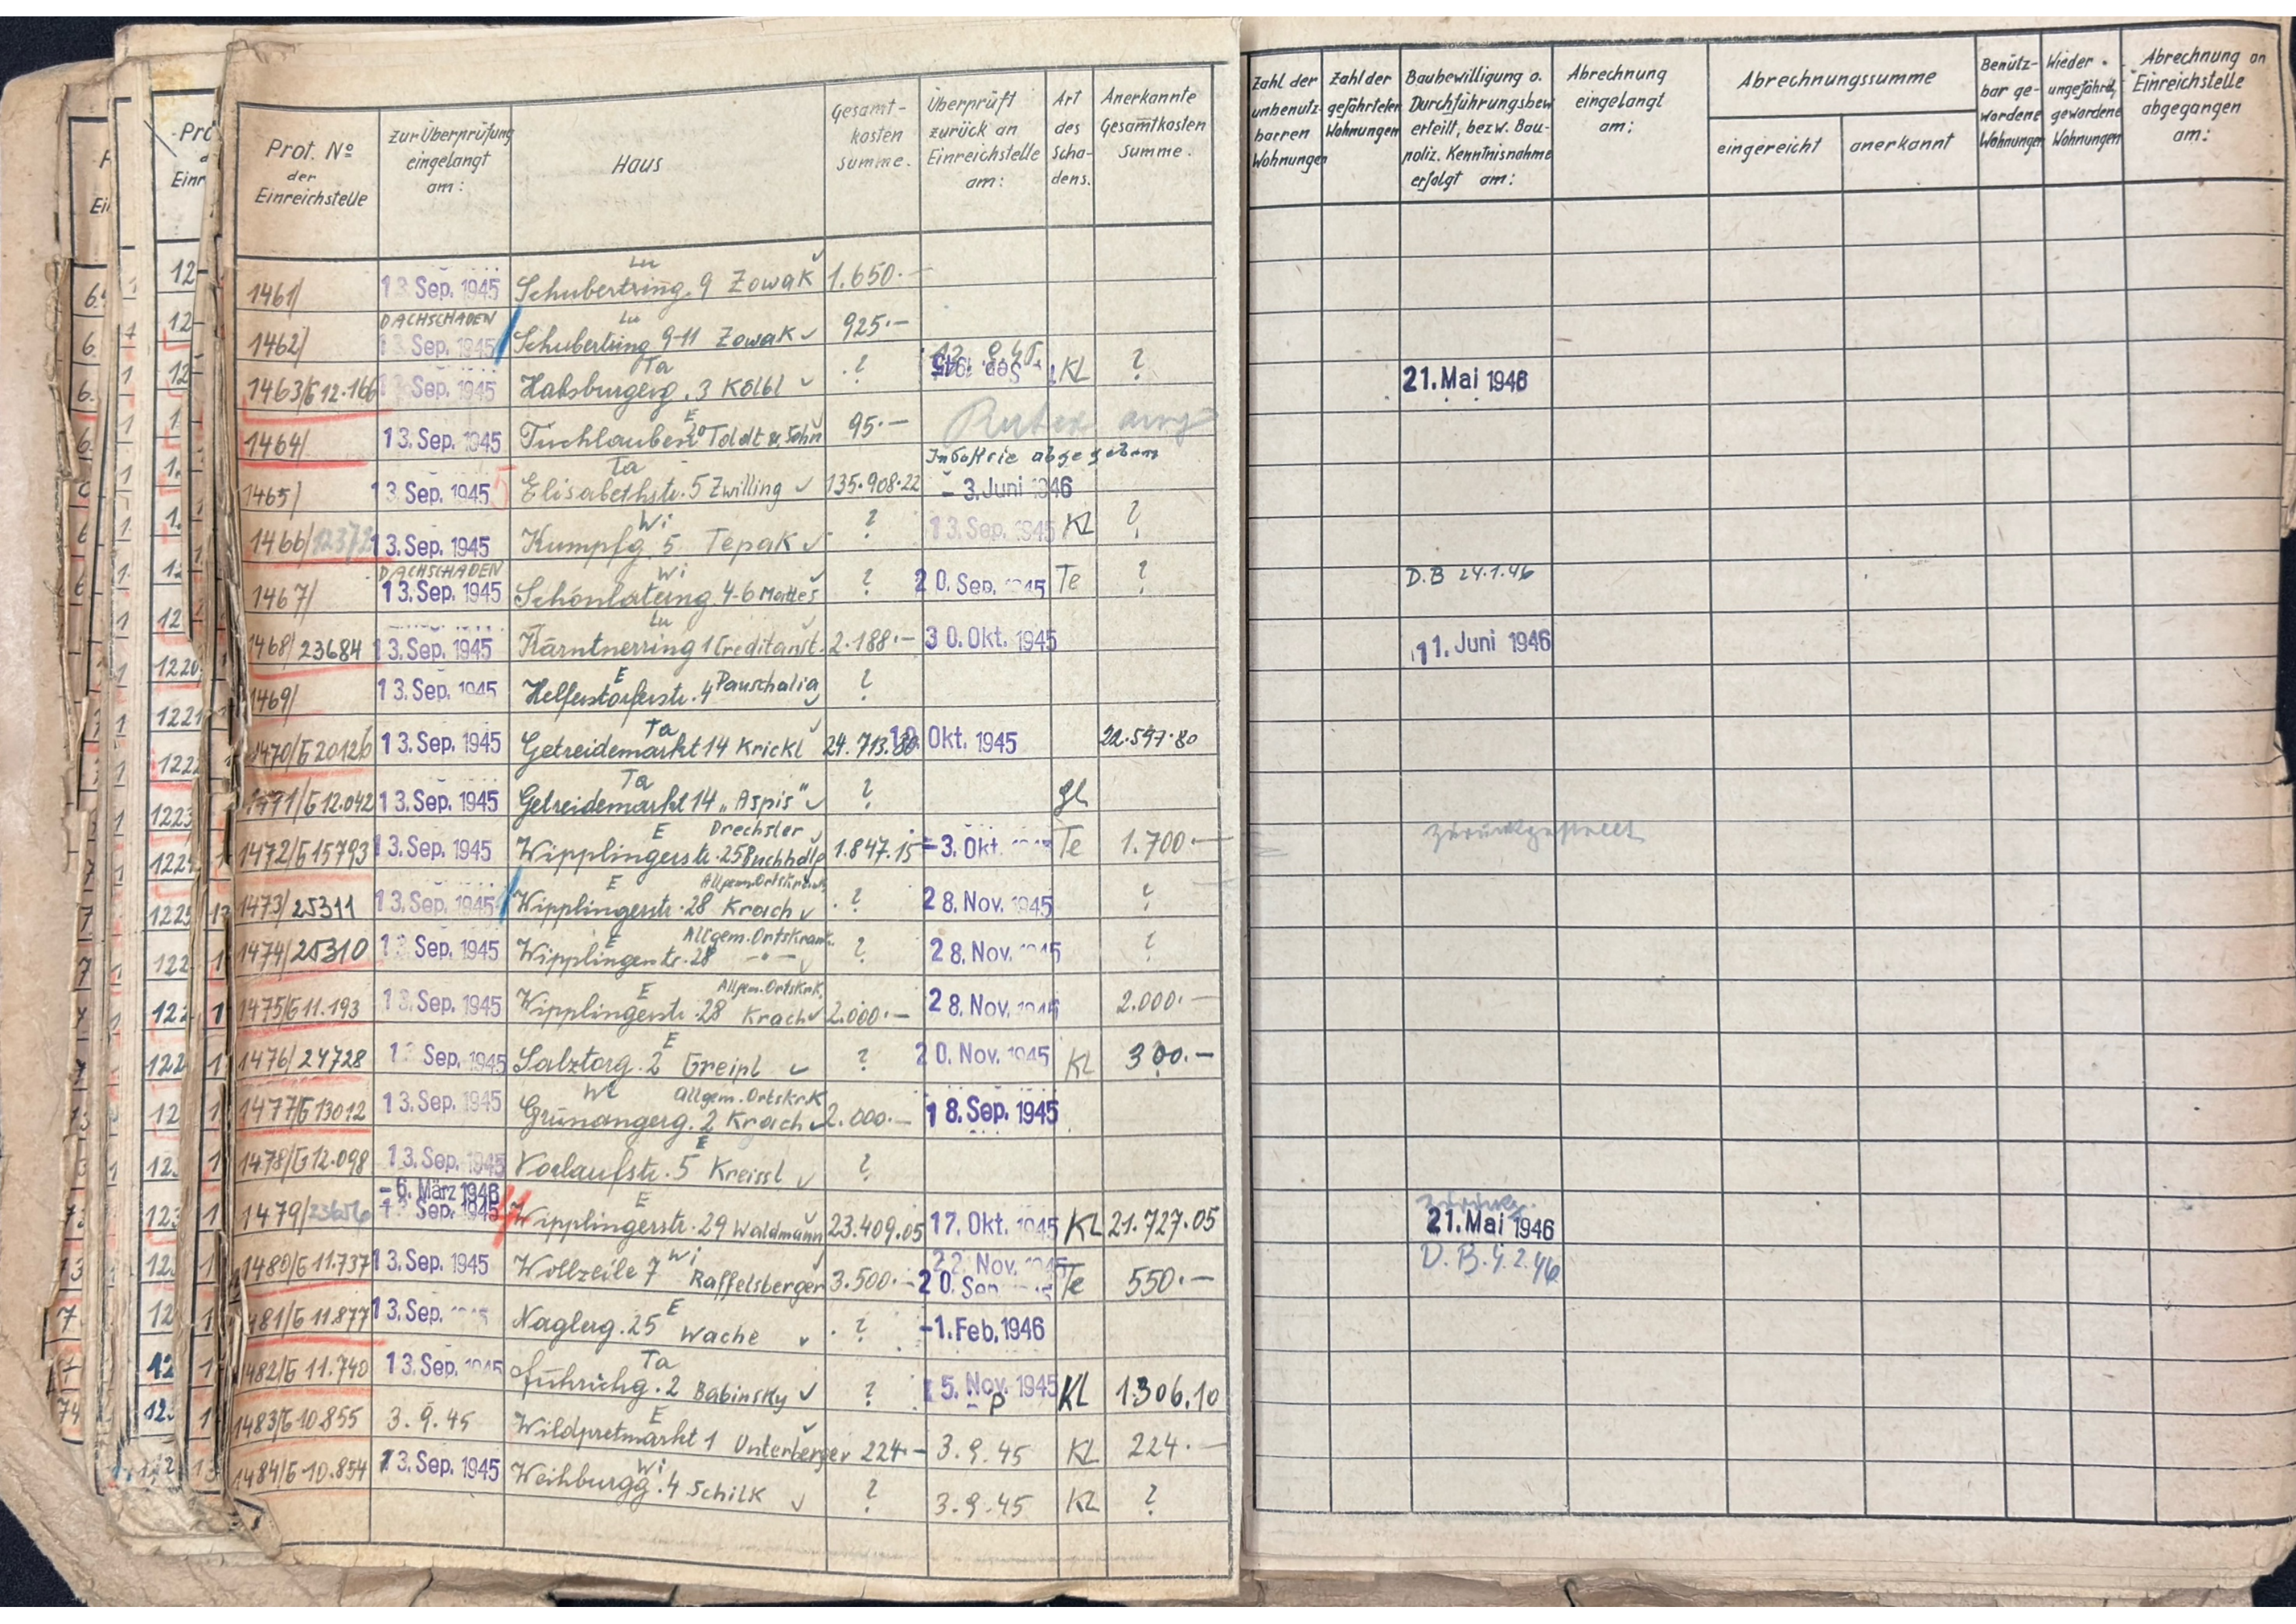 Prot. No der Einreichstelle
zur Überprüfung eingelangt am:
Haus
Gesamt-kosten summe.
Überprüft zurück an Einreichstelle am:
Art des Scha-dens.
Anerkannte Gesamtkosten Summe.
Zahl der unbenutz-barren Wohnungen
Zahl der gefährteten Wohnungen
Baubewilligung o. Durchführungsbew. erteilt, bezw. Bau-poliz. Kenntnisnahme erfolgt am:
Abrechnung eingelangt am:
Abrechnungssumme
eingereicht
anerkannt
Benütz-bar ge-wordene Wohnungen
Wieder ungefährd. gewordene Wohnungen
Abrechnung an Einreichstelle abgegangen am:
Lu
1461/ 13. Sep. 1945 Schubertring. 9 Zowak 1.650.—
DACHSCHADEN Lu
1462/ 13. Sep. 1945 Schubertring 9-11 Zowak 925.—
Ta
1463/G 12.166 13. Sep. 1945 Habsburgerg. 3 Kölbl ? Sep. 1945 KL ? 21. Mai 1946
E
1464/ 13. Sep. 1945 Tuchlauben 20 Toldt & Sohn 95.—
Ta Industrie abgegeben
1465/ 13. Sep. 1945 5 Elisabethstr. 5 Zwilling 135.908.22 - 3. Juni 1946
Wi
1466/ 13. Sep. 1945 Kumpfg. 5 Tepak ? 13. Sep. 1945 KL ?
DACHSCHADEN Wi
1467/ 13. Sep. 1945 Schönlaterng. 4-6 Mattes ? 20. Sep. 1945 Te ? D.B 24.1.46
Lu
1468/23684 13. Sep. 1945 Kärntnerring 1 Creditanst. 2.188.— 30. Okt. 1945 11. Juni 1946
E
1469/ 13. Sep. 1945 Helferstorferstr. 4 Pauschalig ?
Ta
1470/G 20126 13. Sep. 1945 Getreidemarkt 14 Krickl 24.713.80 Okt. 1945 22.597.80
Ta
1471/G 12.042 13. Sep. 1945 Getreidemarkt 14 „Aspis" ? gl
E Drechsler
1472/G 15793 13. Sep. 1945 Wipplingerstr. 25 Buchhdlg 1.847.15 -3. Okt. Te 1.700.— zurückgestellt
E Allgem. Ortskrank.
1473/25311 13. Sep. 1945 Wipplingerstr. 28 Krach ? 28. Nov. 1945 ?
E Allgem. Ortskrank.
1474/25310 13. Sep. 1945 Wipplingerstr. 28 -"- ? 28. Nov. 1945 ?
E Allgem. Ortskrk.
1475/G 11.193 13. Sep. 1945 Wipplingerstr. 28 Krach 2.000.— 28. Nov. 1945 2.000.—
E
1476/24728 13. Sep. 1945 Salztorg. 2 Greipl ? 20. Nov. 1945 KL 300.—
Wi Allgem. Ortskrk
1477/G 13012 13. Sep. 1945 Grünangerg. 2 Krach 2.000.— 18. Sep. 1945
E
1478/G 12.098 13. Sep. 1945 Vorlaufstr. 5 Kreissl ?
- 6. März 1946 E zurückg.
1479/23656 13. Sep. 1945 Wipplingerstr. 29 Waldmann 23.409.05 17. Okt. 1945 KL 21.727.05 21. Mai 1946
Wi 22. Nov. 1945
1480/G 11.737 13. Sep. 1945 Wollzeile 7 Raffelsberger 3.500.— 20. Sep. Te 550.— D.B. 4.2.46
E
1481/G 11.877 13. Sep. Naglerg. 25 Wache ? -1. Feb. 1946
Ta
1482/G 11.740 13. Sep. 1945 Führichg. 2 Babinsky ? 5. Nov. 1945 P KL 1.306.10
E
1483/G 10855 3.9.45 Wildpretmarkt 1 Unterberger 224.— 3.9.45 KL 224.—
Wi
1484/G 10.854 13. Sep. 1945 Weihburgg. 4 Schilk ? 3.9.45 KL ?